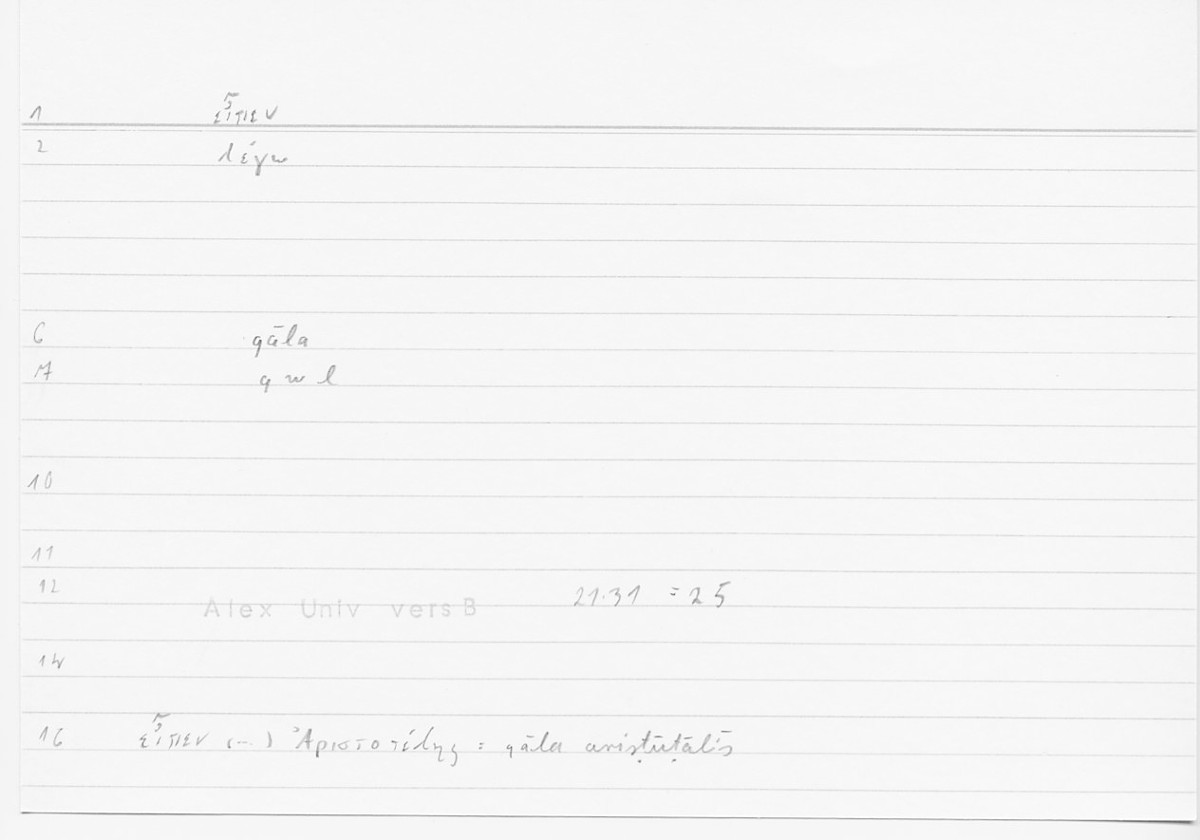 1 εἶπεν
2 λέγω
6 qāla
7 q w l
10
11
12 Alex Univ vers B 21.31 = 25
14
16 εἶπεν (...) Ἀριστοτέλης = qāla arisṭūṭālīs